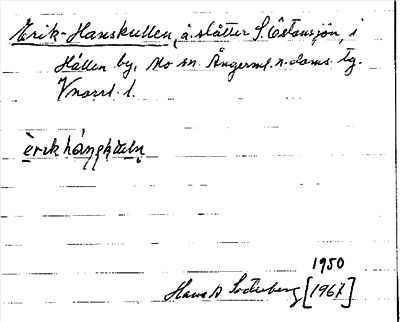 Erik-Hanskullen, å. slåtter S. Östansjön, i
Hållen by, Mo sn. Ångerml. n. doms. tg.
Vnorrl. l.
1950
Hans A Söderberg [1967]